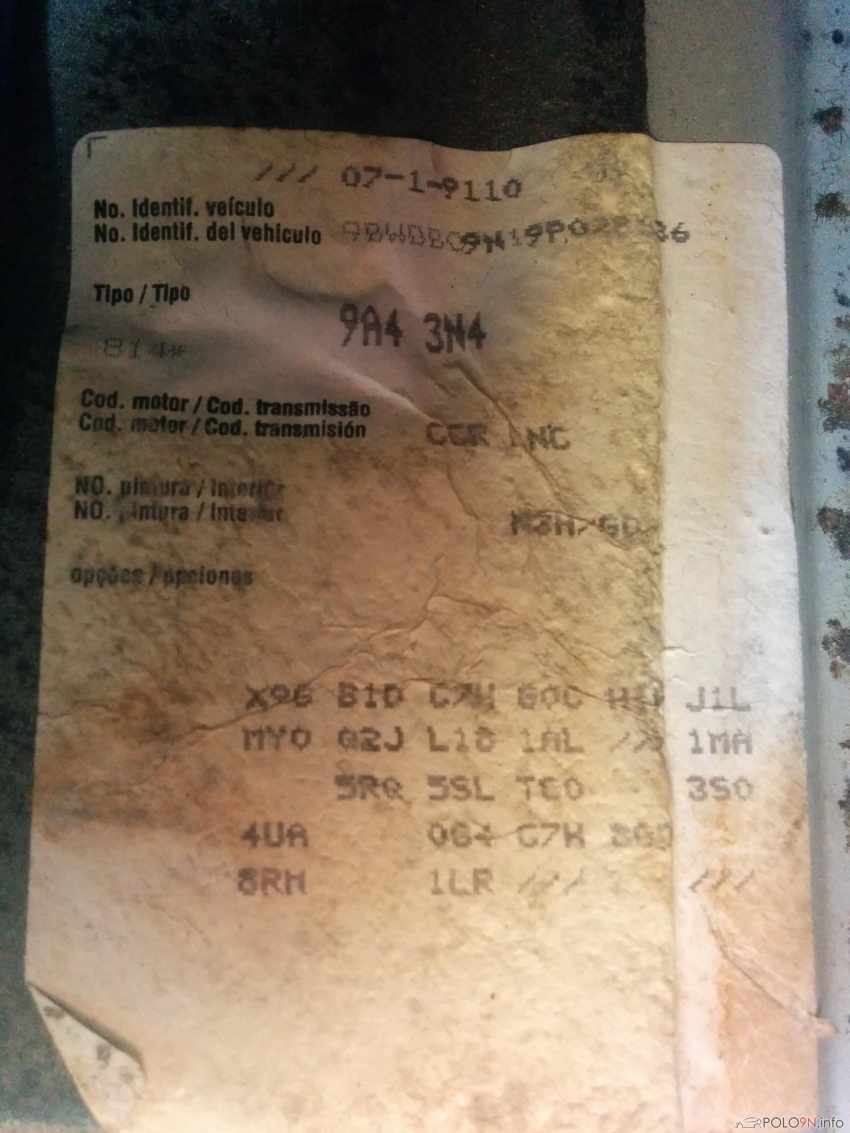 /// 07-1-9110
No. Identif. veículo
No. Identif. del vehículo
Tipo / Tipo
9A4 3N4
814*
Cod. motor / Cod. transmissão
Cod. motor / Cod. transmisión CCR
NO. pintura / Interior
NO. pintura / Interior
opções / opciones
X96 B1D C7H G0C J1L
MY0 G2J L18 1AL /// 1MA
5RQ 5SL TE0 3S0
4UA 0G4 C7H
8RM 1LR /// ///
POLO9N.info